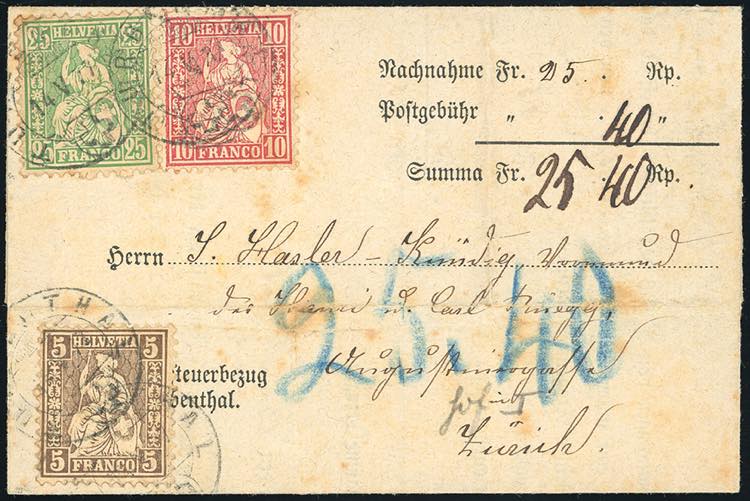 25 HELVETIA 25
25 FRANCO 25
10 HELVETIA 10
10 FRANCO 10
Nachnahme Fr. 25. Rp.
Postgebühr " 40 "
Summa Fr. 25 40 Rp.
Herrn J. Hasler-Kündig, Vormund
des Henri u. Carl Rüegg,
25.40
5 HELVETIA 5
5 FRANCO 5
Steuerbezug
benthal.
Augustinergasse
in
Zürich.